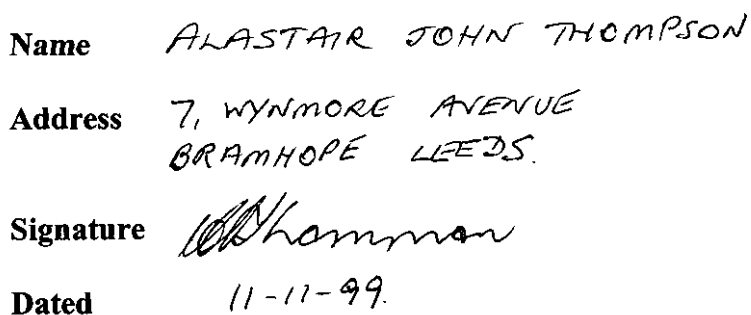 Name ALASTAIR JOHN THOMPSON
Address 7, WYNMORE AVENUE
BRAMHOPE LEEDS.
Signature
Dated 11-11-99.